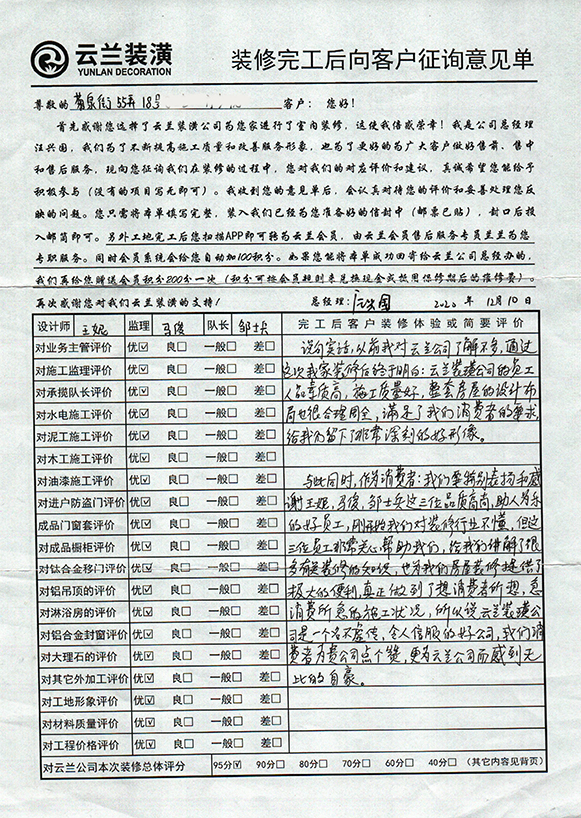 云兰装潢
YUNLAN DECORATION
装修完工后向客户征询意见单
尊敬的 莆泉街55弄18号 客户： 您好！
首先感谢您选择了云兰装潢公司为您家进行了室内装修，这使我倍感荣幸！我是公司总经理
汪兴国，我们为了不断提高施工质量和改善服务形象，也为了更好的为广大客户做好售前、售中
和售后服务，现向您征询我们在装修的过程中，您对我们的对应评价和建议，真诚希望您能给予
积极参与（没有的项目写无即可）。我收到您的意见单后，会认真对待您的评价和妥善处理您反
映的问题。您只需将本单填写完整，装入我们已经为您准备好的信封中（邮票已贴），封口后投
入邮筒即可。另外工地完工后您扫描APP即可转为云兰会员，由云兰会员售后服务专员兰兰为您
专职服务。同时会员系统会给您自动加100积分。如果您能将本单成功回寄给云兰公司总经办的，
我们再给您赠送会员积分200分一次（积分可按会员规则来兑换现金或抵用保修期后的维修费）。
再次感谢您对我们云兰装潢的支持！ 总经理： 汪兴国 2020 年 12月10日
设计师 王妮 监理 马俊 队长 邹士兵 完工后客户装修体验或简要评价
对业务主管评价 优☑ 良□ 一般□ 差□ 说句实话，以前我对云兰公司了解不多，通过
对施工监理评价 优☑ 良□ 一般□ 差□ 这次我家装修后给予明白：云兰装璜公司的员工
对承揽队长评价 优☑ 良□ 一般□ 差□ 人品素质高，施工质量好，整套房屋的设计布
对水电施工评价 优☑ 良□ 一般□ 差□ 局也很合理周全，满足了我们消费者的需求，
对泥工施工评价 优☑ 良□ 一般□ 差□ 给我们留下了非常深刻的好形像。
对木工施工评价 优☑ 良□ 一般□ 差□
对油漆施工评价 优☑ 良□ 一般□ 差□ 与此同时，作为消费者：我们要特别表扬和感
对进户防盗门评价 优☑ 良□ 一般□ 差□ 谢王妮，马俊，邹士兵这三位品质高尚，助人为乐
成品门窗套评价 优☑ 良□ 一般□ 差□ 的好员工，刚开始我们对装修行业不懂，但这
对成品橱柜评价 优☑ 良□ 一般□ 差□ 三位员工非常关心帮助我们，给我们讲解了很
对钛合金移门评价 优☑ 良□ 一般□ 差□ 多有关装修的知识，也为我们房屋装修提供了
对铝吊顶的评价 优☑ 良□ 一般□ 差□ 极大的便利，真正做到了想消费者所想，急
对淋浴房的评价 优☑ 良□ 一般□ 差□ 消费所急的施工状况，所以说云兰装璜公
对铝合金封窗评价 优☑ 良□ 一般□ 差□ 司是一个名不虚传，令人信服的好公司，我们消
对大理石的评价 优☑ 良□ 一般□ 差□ 费者为贵公司点个赞，更为云兰公司而感到无
对其它外加工评价 优☑ 良□ 一般□ 差□ 比的自豪。
对工地形象评价 优☑ 良□ 一般□ 差□
对材料质量评价 优☑ 良□ 一般□ 差□
对工程价格评价 优☑ 良□ 一般□ 差□
对云兰公司本次装修总体评分 95分☑ 90分□ 80分□ 70分□ 60分□ 40分□ （其它内容见背页）